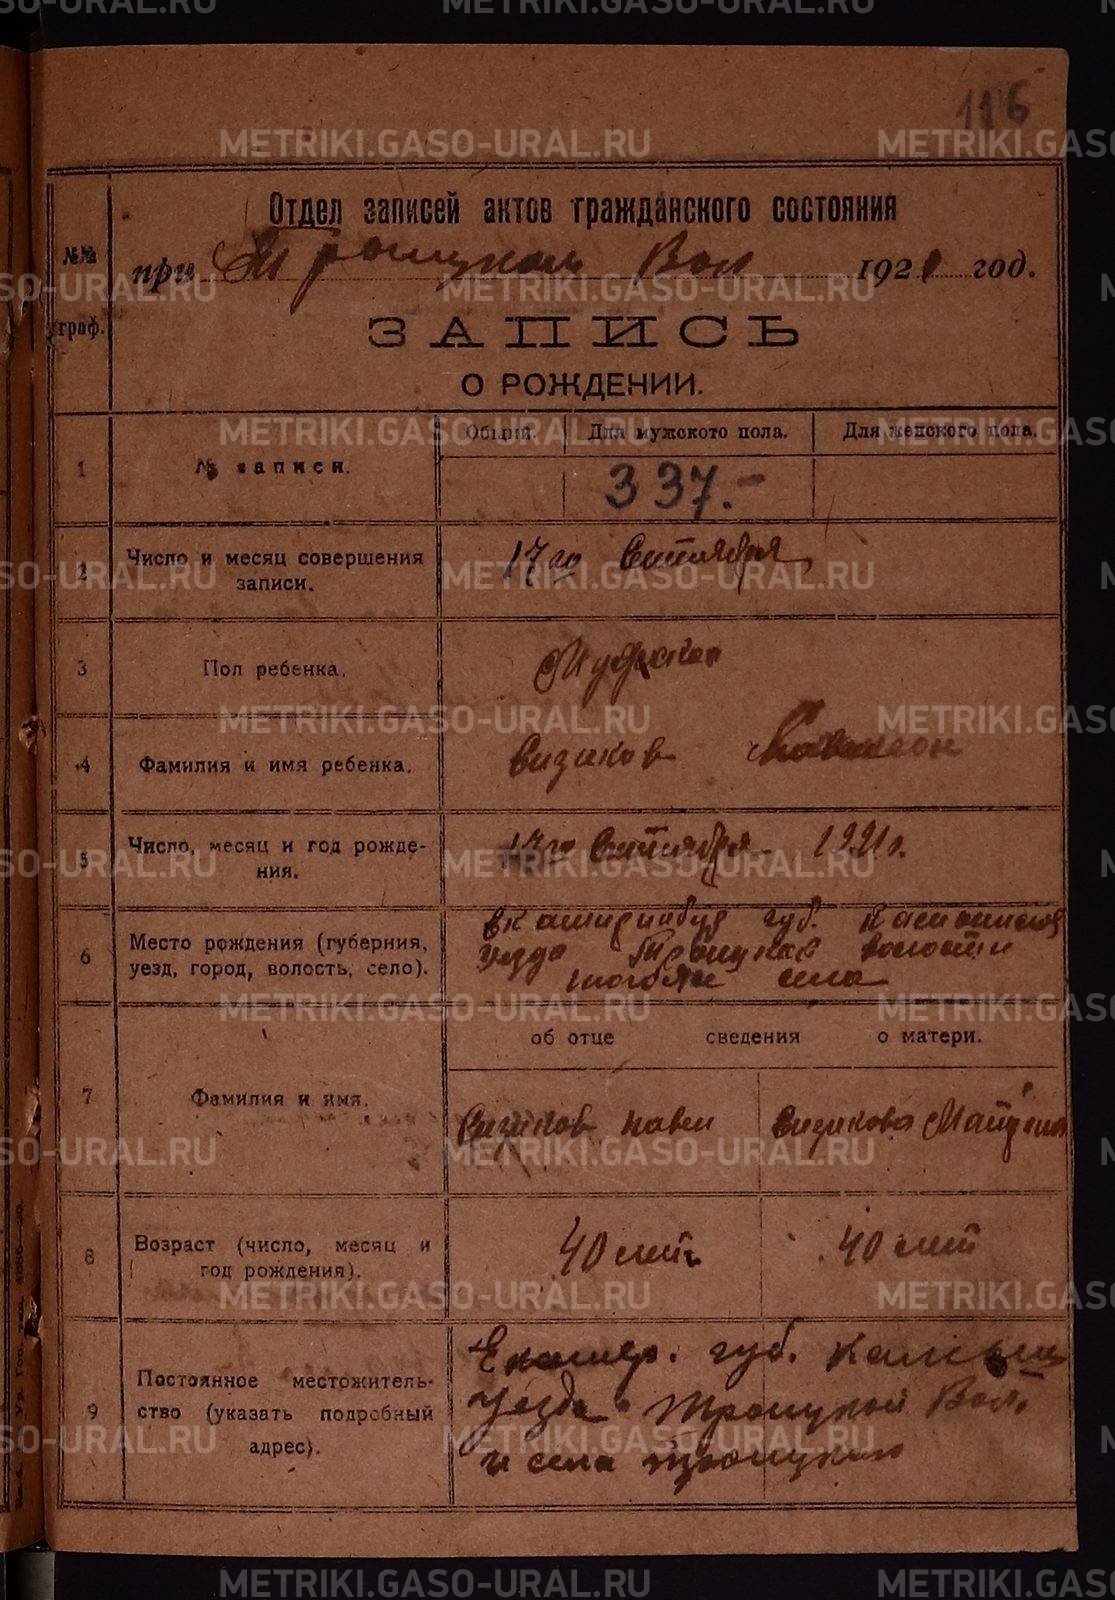 116
Отдел записей актов гражданского состояния
№№ граф.
при Троицком Вол 1921 год.
ЗАПИСЬ
О РОЖДЕНИИ.
Общий. Для мужского пола. Для женского пола.
1 № записи. 337.-
2 Число и месяц совершения записи. 17го Сентября
3 Пол ребенка. Мужской
4 Фамилия и имя ребенка. Визиков
5 Число, месяц и год рождения. 17го Сентября 1921 г.
6 Место рождения (губерния, уезд, город, волость, село). губ.
уезда Троицкой волости
села
об отце сведения о матери.
7 Фамилия и имя. Визиков Павел Визикова
8 Возраст (число, месяц и год рождения). 40 лет. 40 лет
9 Постоянное местожительство (указать подробный адрес). Екатер. губ. Камышл
Уезда Троицкой Вол.
и села Троицких
METRIKI.GASO-URAL.RU